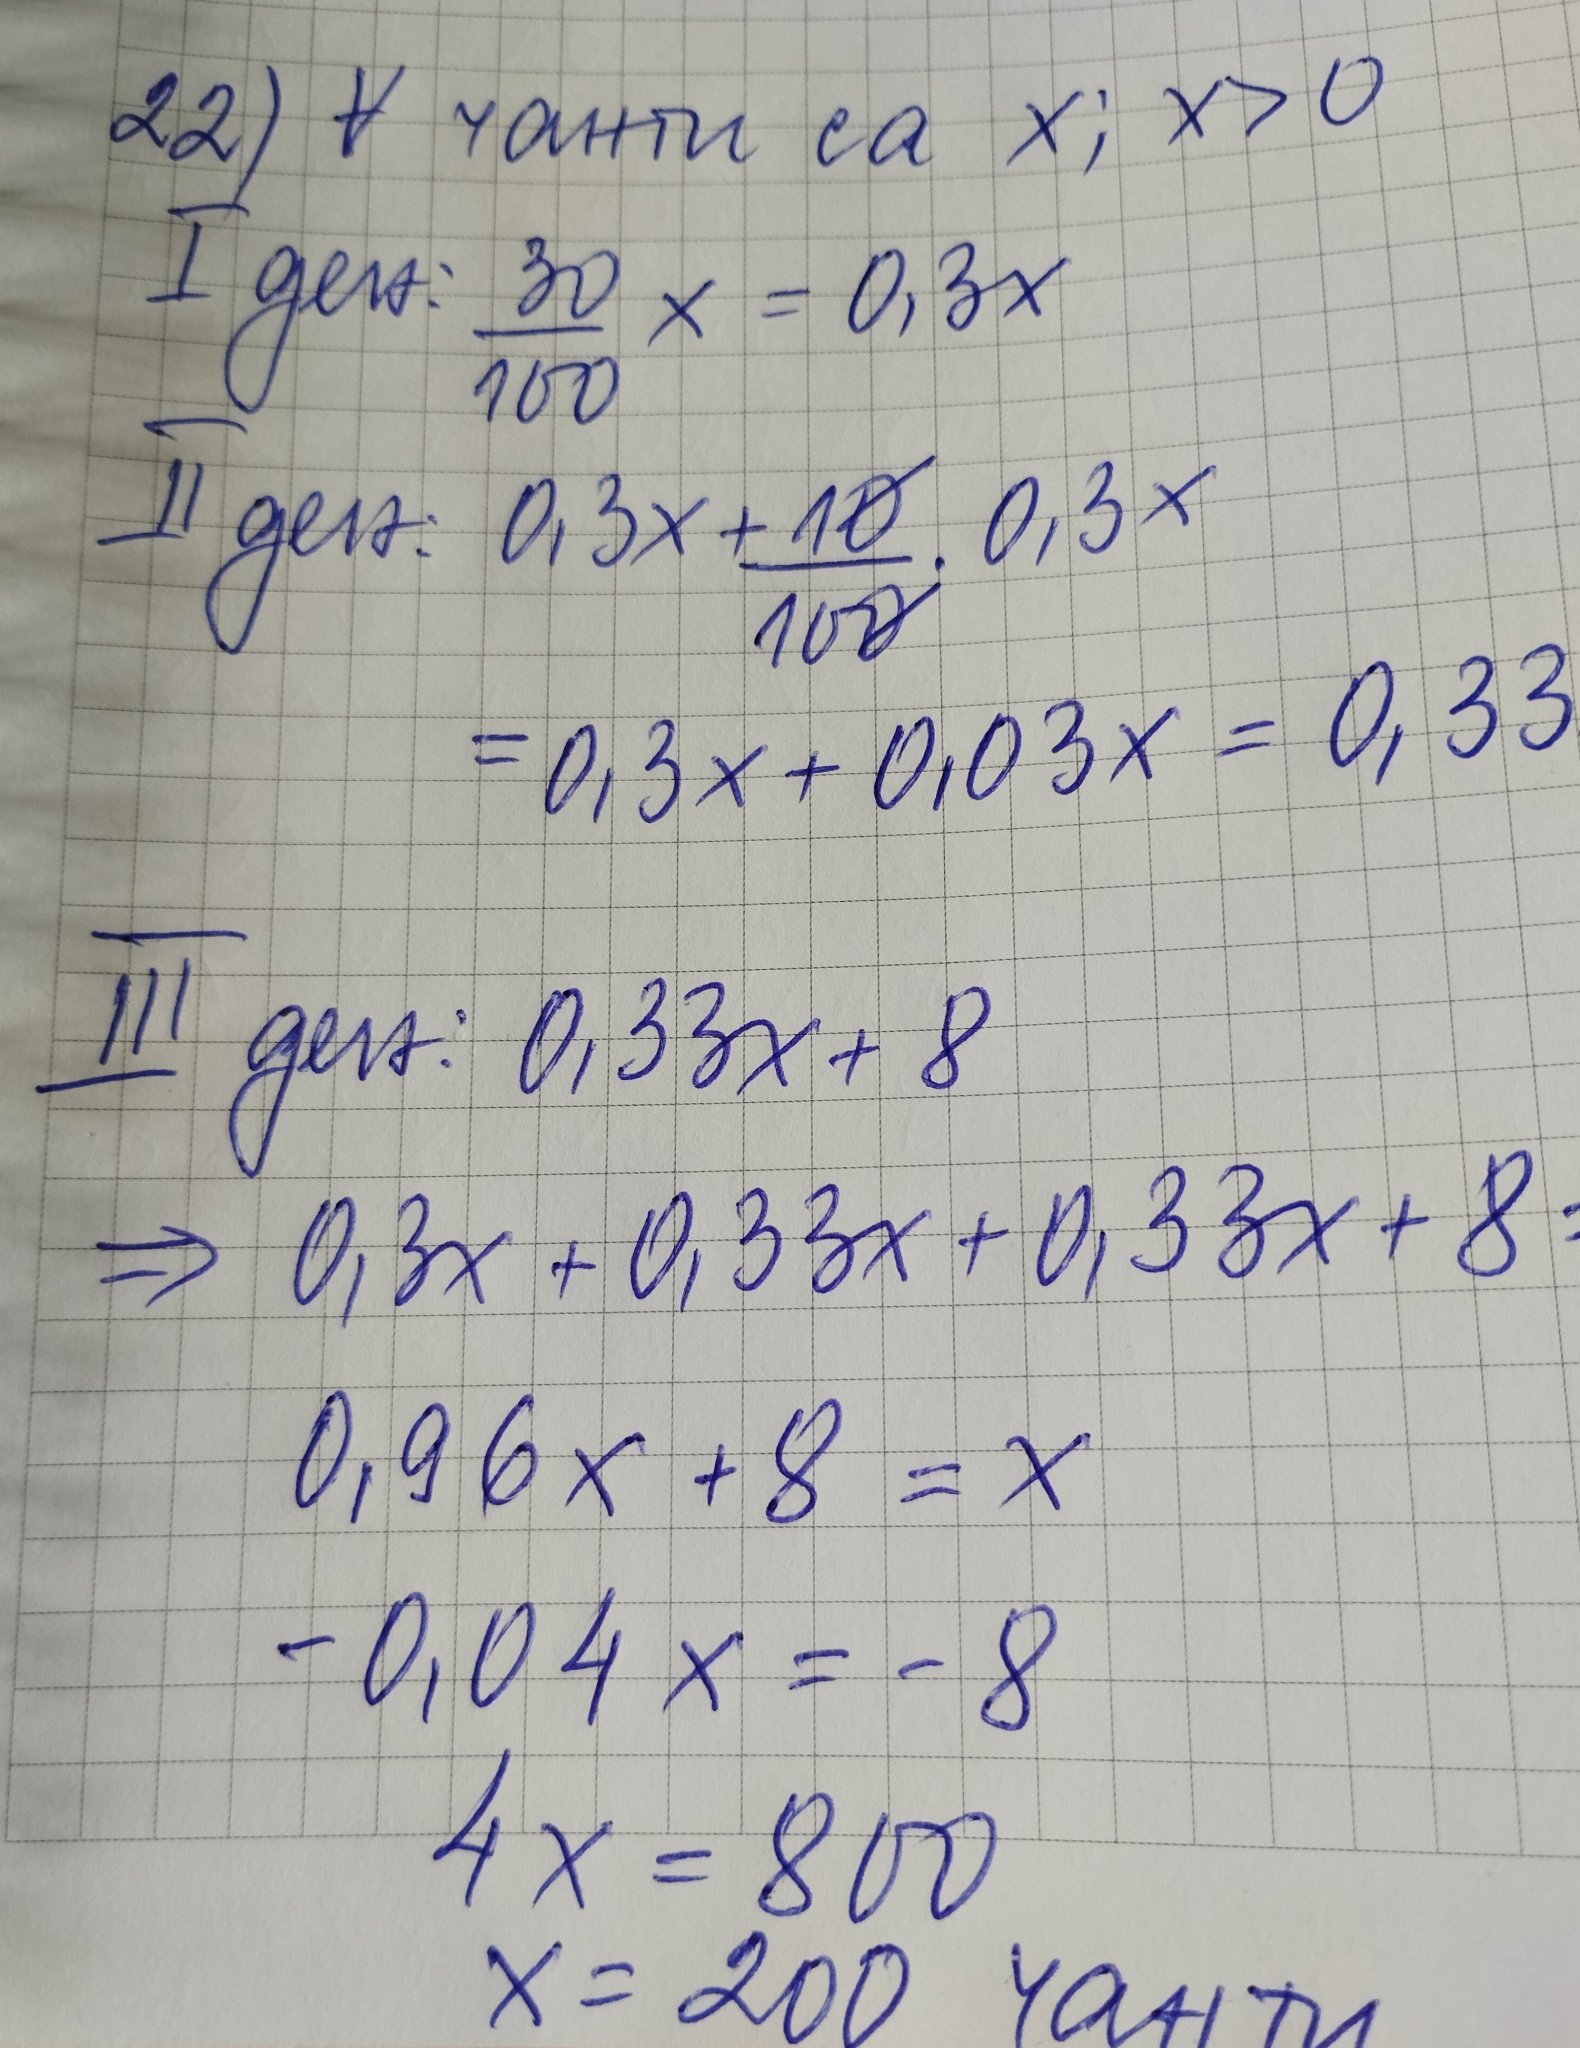 22) ∀ чанти са x; x>0
I ден: 30/100 x = 0,3x
II ден: 0,3x + 10/100 . 0,3x
= 0,3x + 0,03x = 0,33
III ден: 0,33x + 8
⇒ 0,3x + 0,33x + 0,33x + 8 =
0,96x + 8 = x
-0,04x = -8
4x = 800
x = 200 чанти